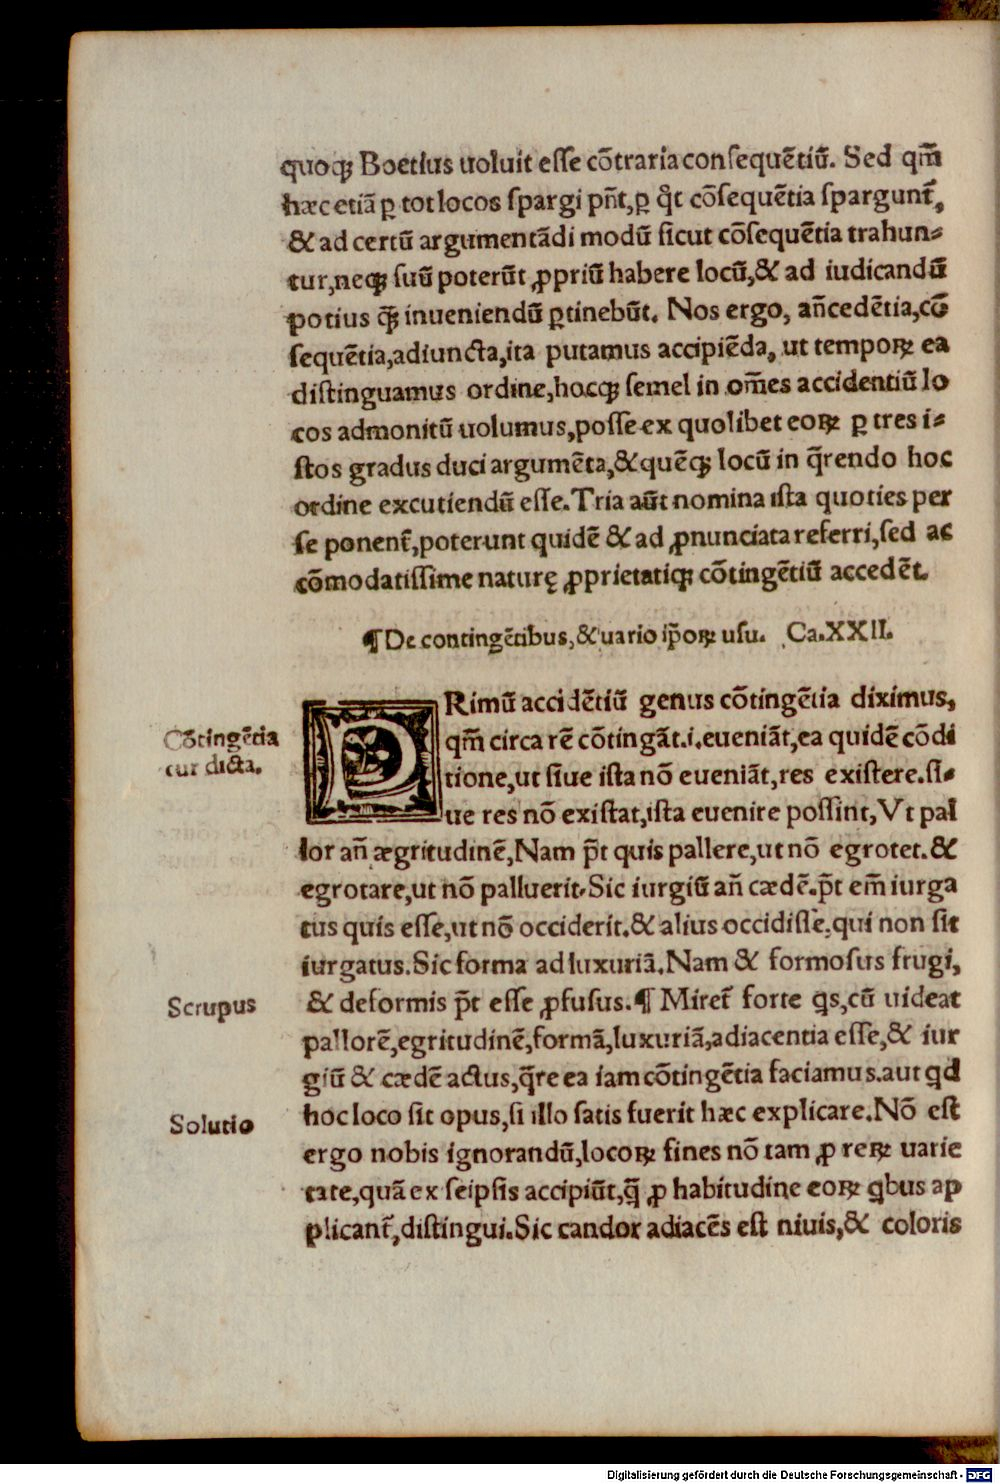 quoqꝫ Boetius uoluit esse cōtraria consequētiū. Sed qm̄
hæc etiā ꝑ tot locos spargi pn̄t, ꝑ q̊t cōsequētia spargunt̄,
& ad certū argumentādi modū sicut cōsequētia trahun-
tur, neqꝫ suū poterūt ꝓpriū habere locū, & ad iudicandū
potius q̄ꝫ inueniendū ꝑtinebūt. Nos ergo, an̄cedētia, cō
sequētia, adiuncta, ita putamus accipiēda, ut tempoꝝ ea
distinguamus ordine, hocqꝫ semel in om̄es accidentiū lo
cos admonitū uolumus, posse ex quolibet eoꝝ ꝑ tres i-
stos gradus duci argumēta, & quēqꝫ locū in q̄rendo hoc
ordine excutiendū esse. Tria aūt nomina ista quoties per
se ponent̄, poterunt quidē & ad ꝓnunciata referri, sed ac
cōmodatissime naturę ꝓprietatiqꝫ cōtingētiū accedēt.
¶ De contingētibus, & uario ip̄oꝝ usu. Ca. XXII.
PRimū accidētiū genus cōtingētia diximus,
Cōtingētia
qm̄ circa rē cōtingāt .i. eueniāt, ea quidē cōdi
cur dicta.
tione, ut siue ista nō eueniāt, res existere. si-
ue res nō existat, ista euenire possint, Vt pal
lor an̄ ægritudinē, Nam p̄t quis pallere, ut nō egrotet. &
egrotare, ut nō palluerit. Sic iurgiū an̄ cædē. p̄t em̄ iurga
tus quis esse, ut nō occiderit. & alius occidisse, qui non sit
iurgatus. Sic forma ad luxuriā. Nam & formosus frugi,
Scrupus
& deformis p̄t esse ꝓfusus. ¶ Miret̄ forte qs, cū uideat
pallorē, egritudinē, formā, luxuriā, adiacentia esse, & iur
giū & cædē actus, q̄re ea iam cōtingētia faciamus. aut qd
Solutio
hoc loco sit opus, si illo satis fuerit hæc explicare. Nō est
ergo nobis ignorandū, locoꝝ fines nō tam ꝓ reꝝ uarie
tate, quā ex seipsis accipiūt, q̄ ꝓ habitudine eoꝝ qbus ap
plicant̄, distingui. Sic candor adiacēs est niuis, & coloris
Digitalisierung gefördert durch die Deutsche Forschungsgemeinschaft - DFG